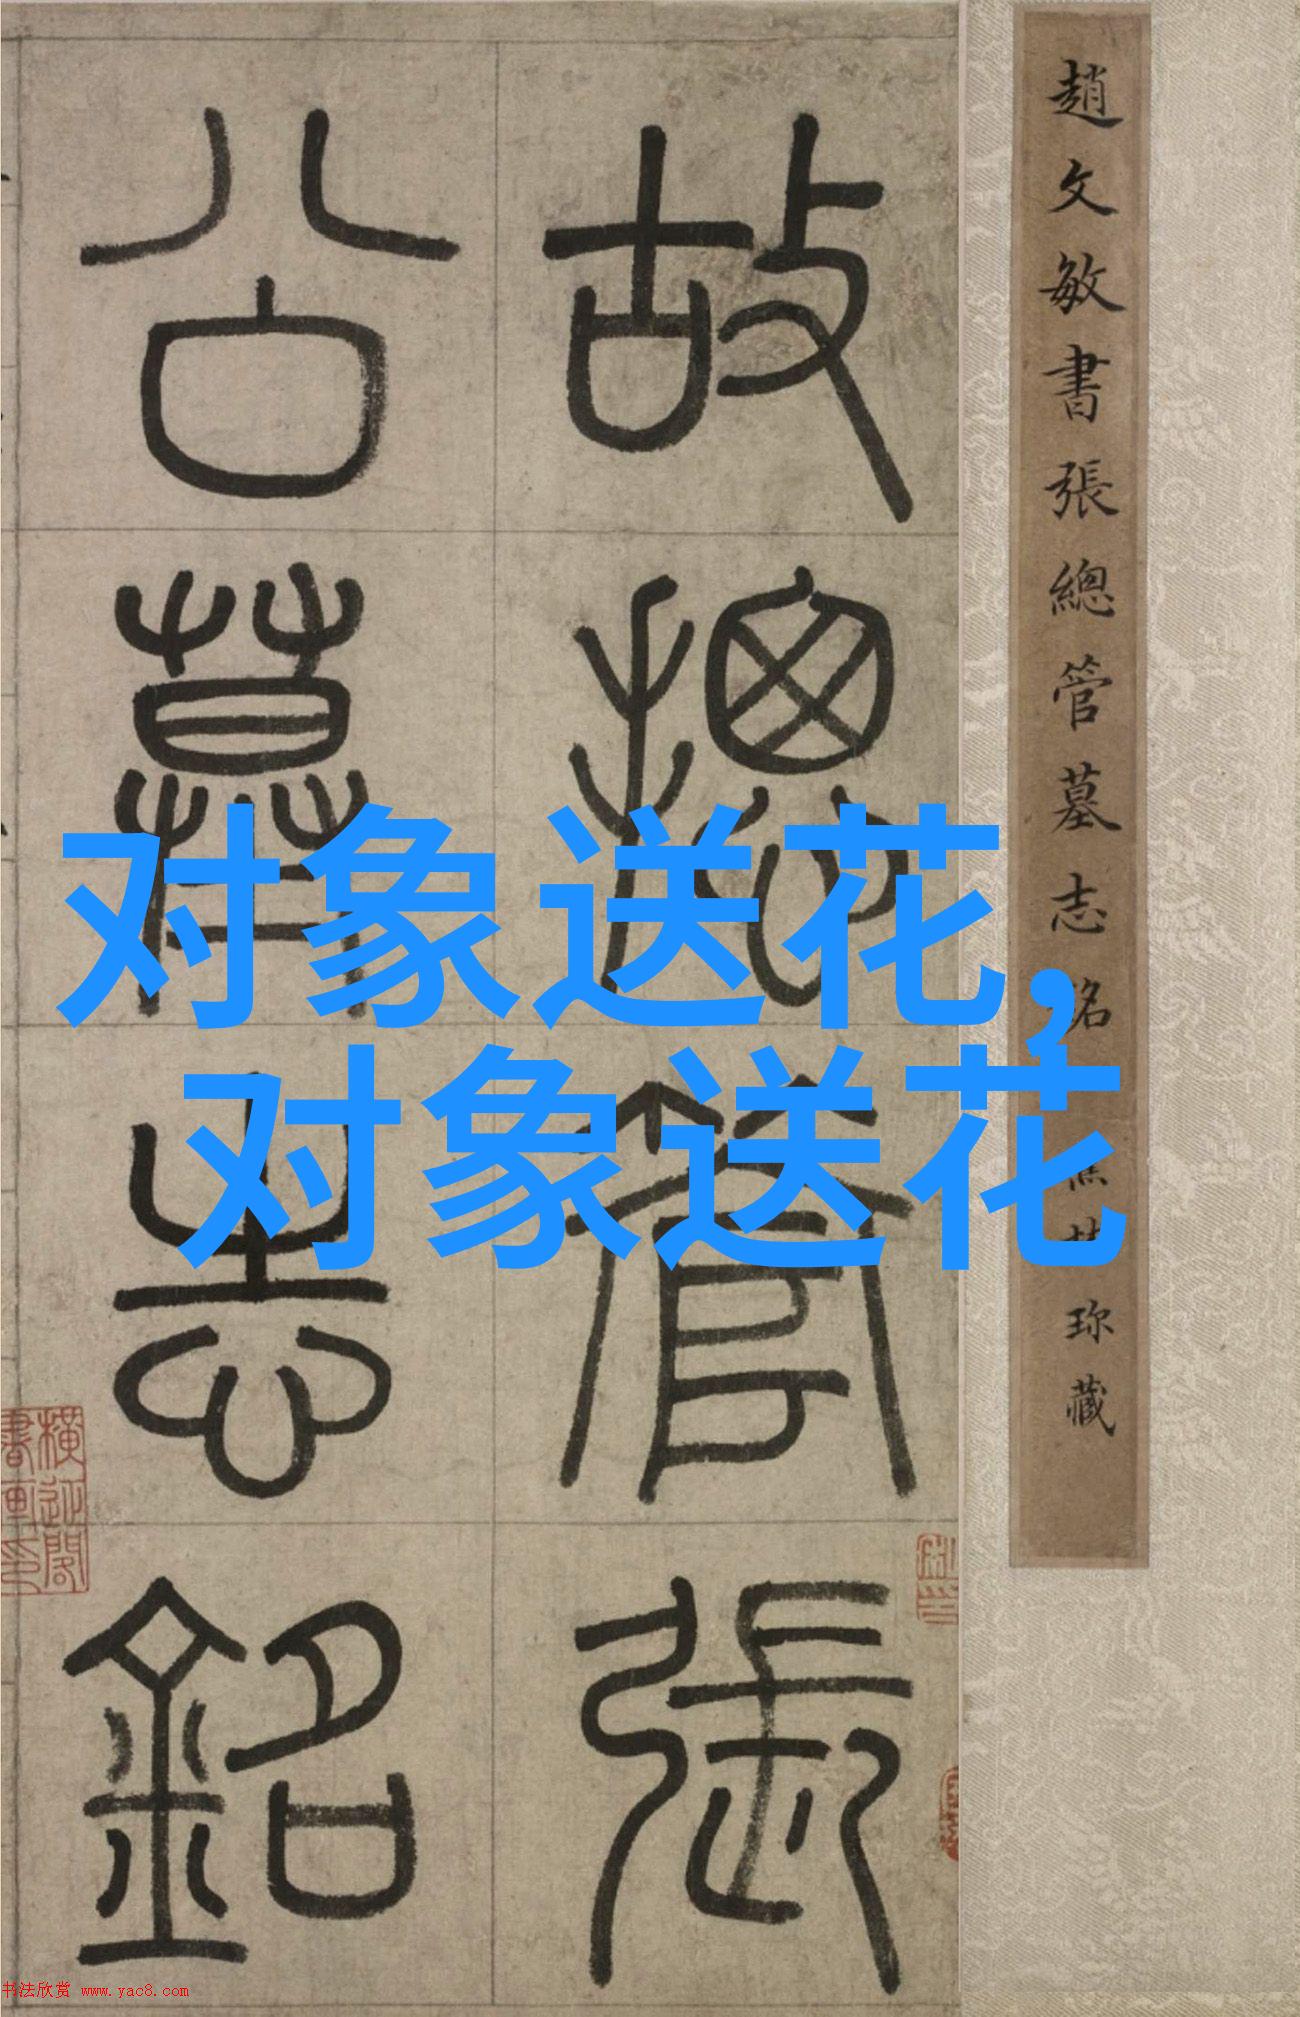 趙文敏書張總管墓志銘
珍藏
故總管張
公墓志銘
对象送花,
对象送花
橫迎閣
書画印
书法欣赏 www.yac8.com